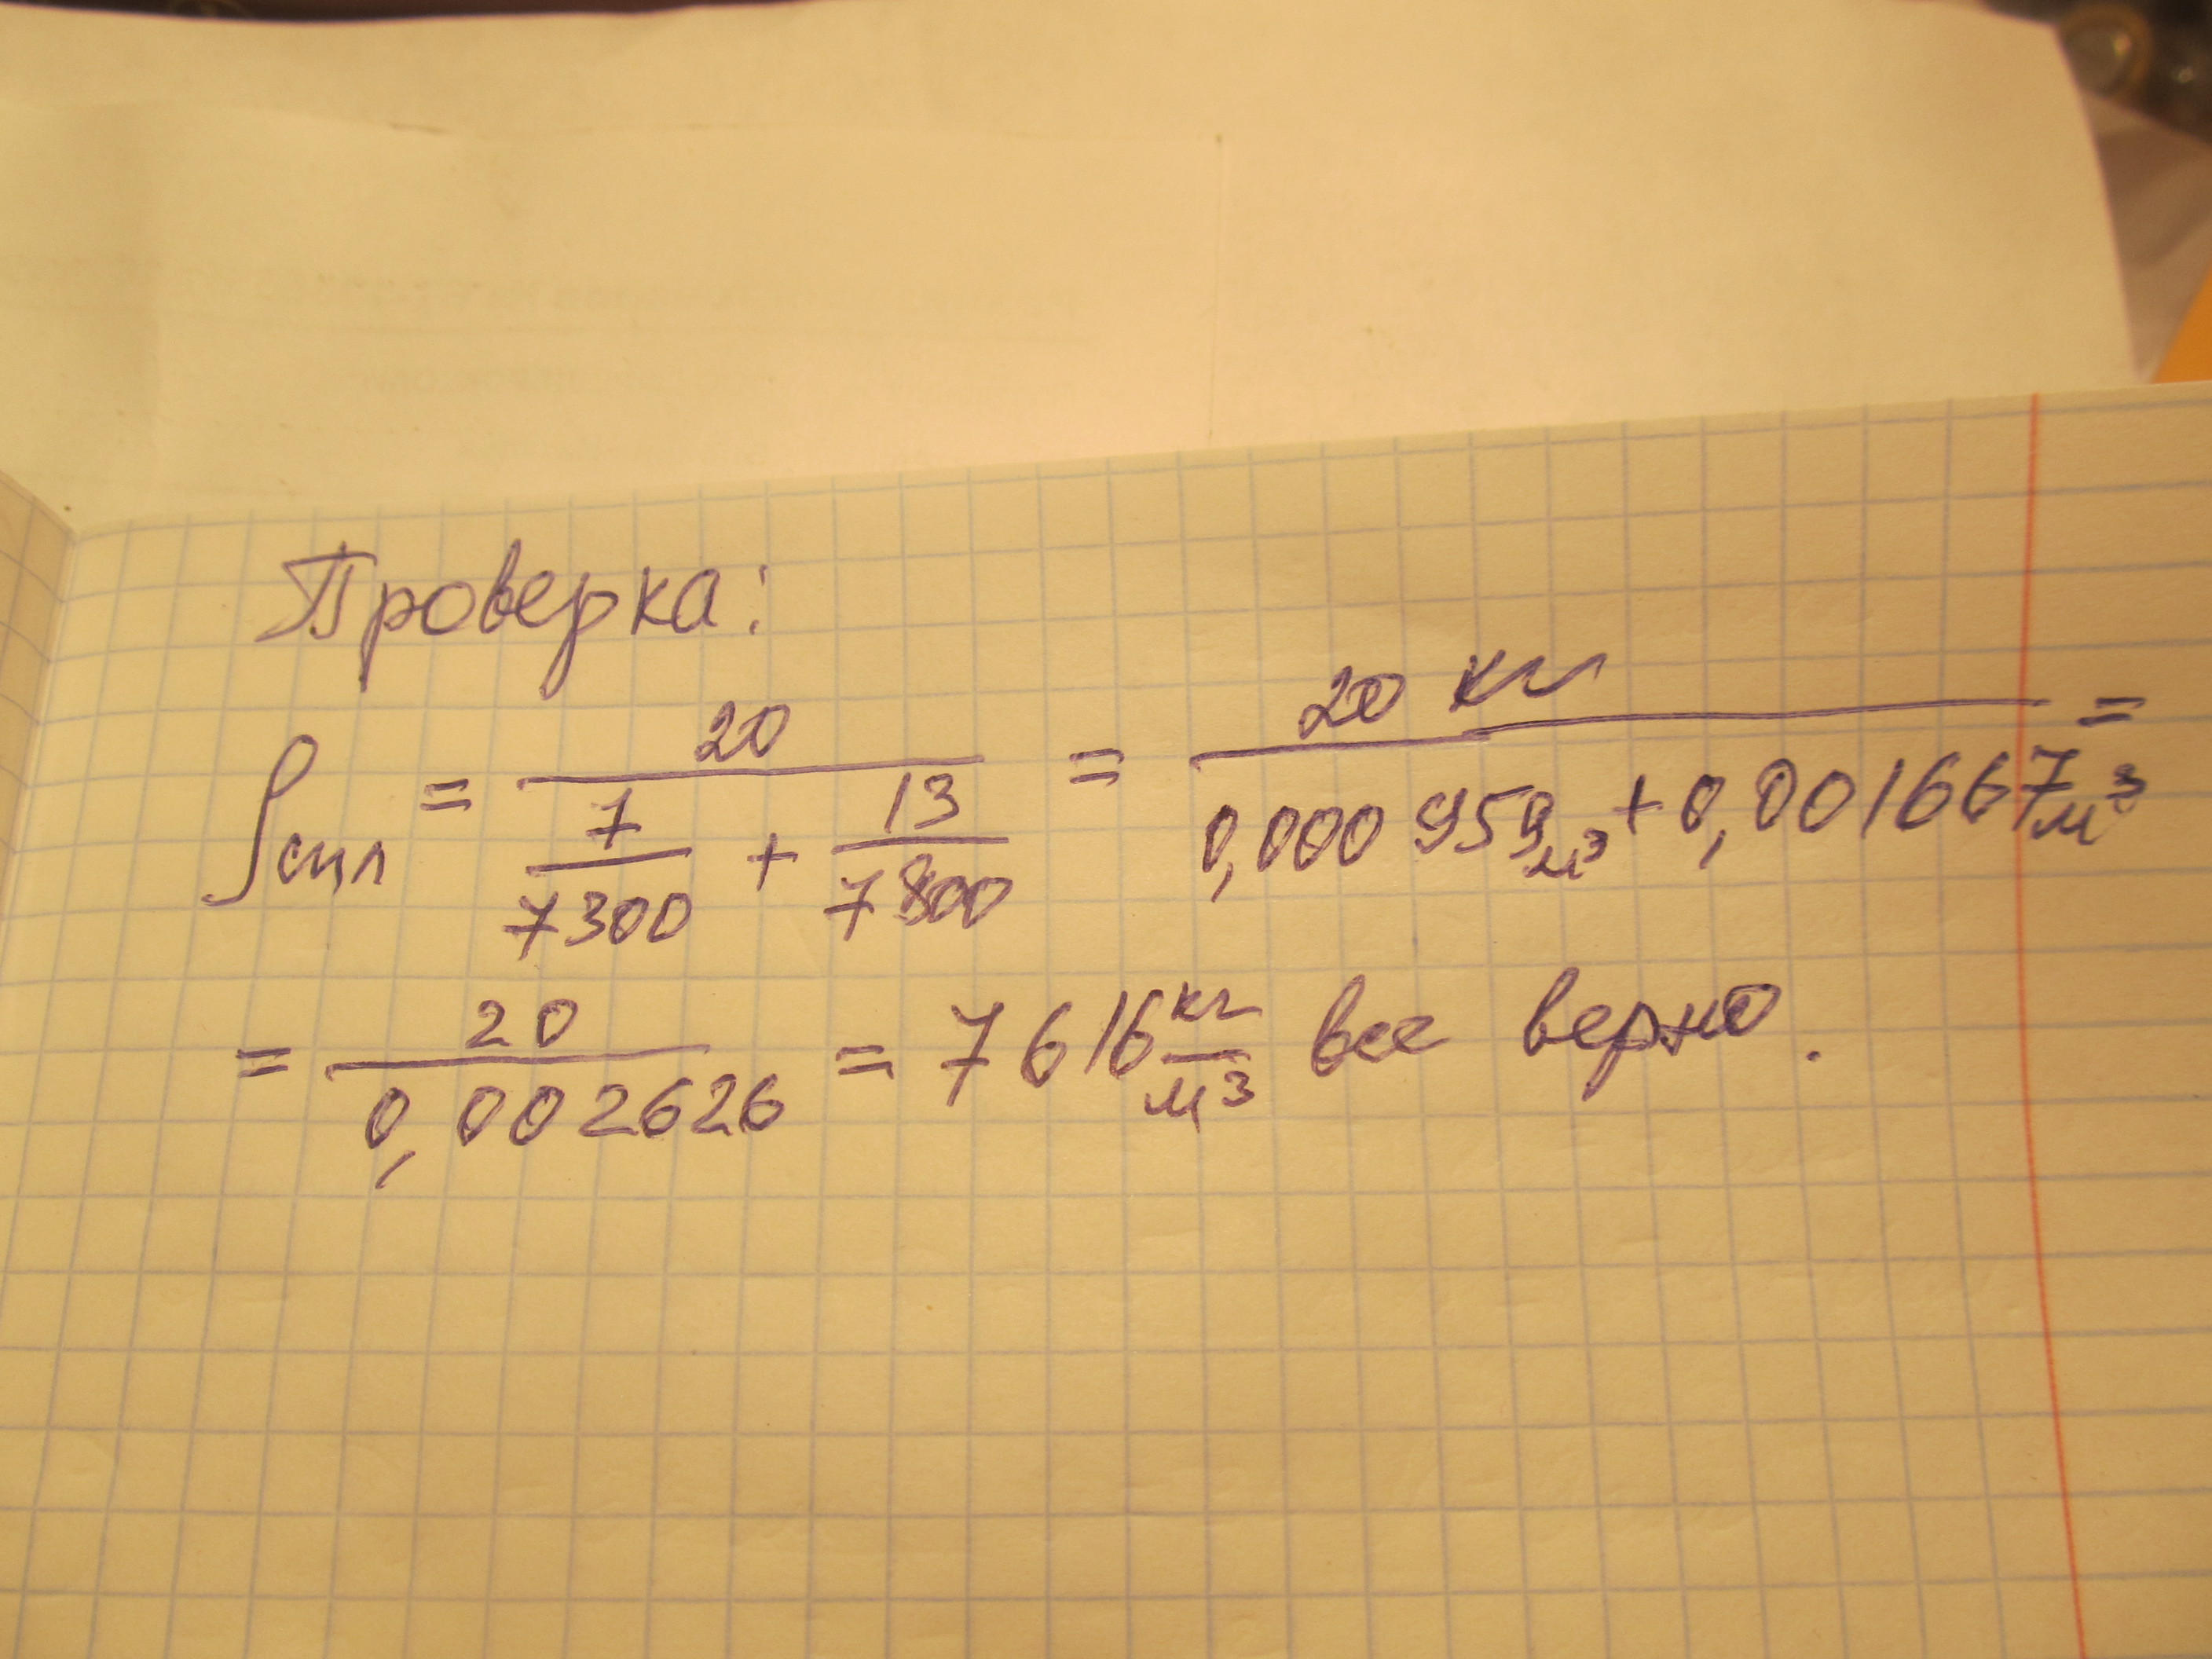 Проверка:
ρспл = 20 / (7/7300 + 13/7800) = 20 кг / (0,000959 м³ + 0,001667 м³) =
= 20 / 0,002626 = 7616 кг/м³ все верно.